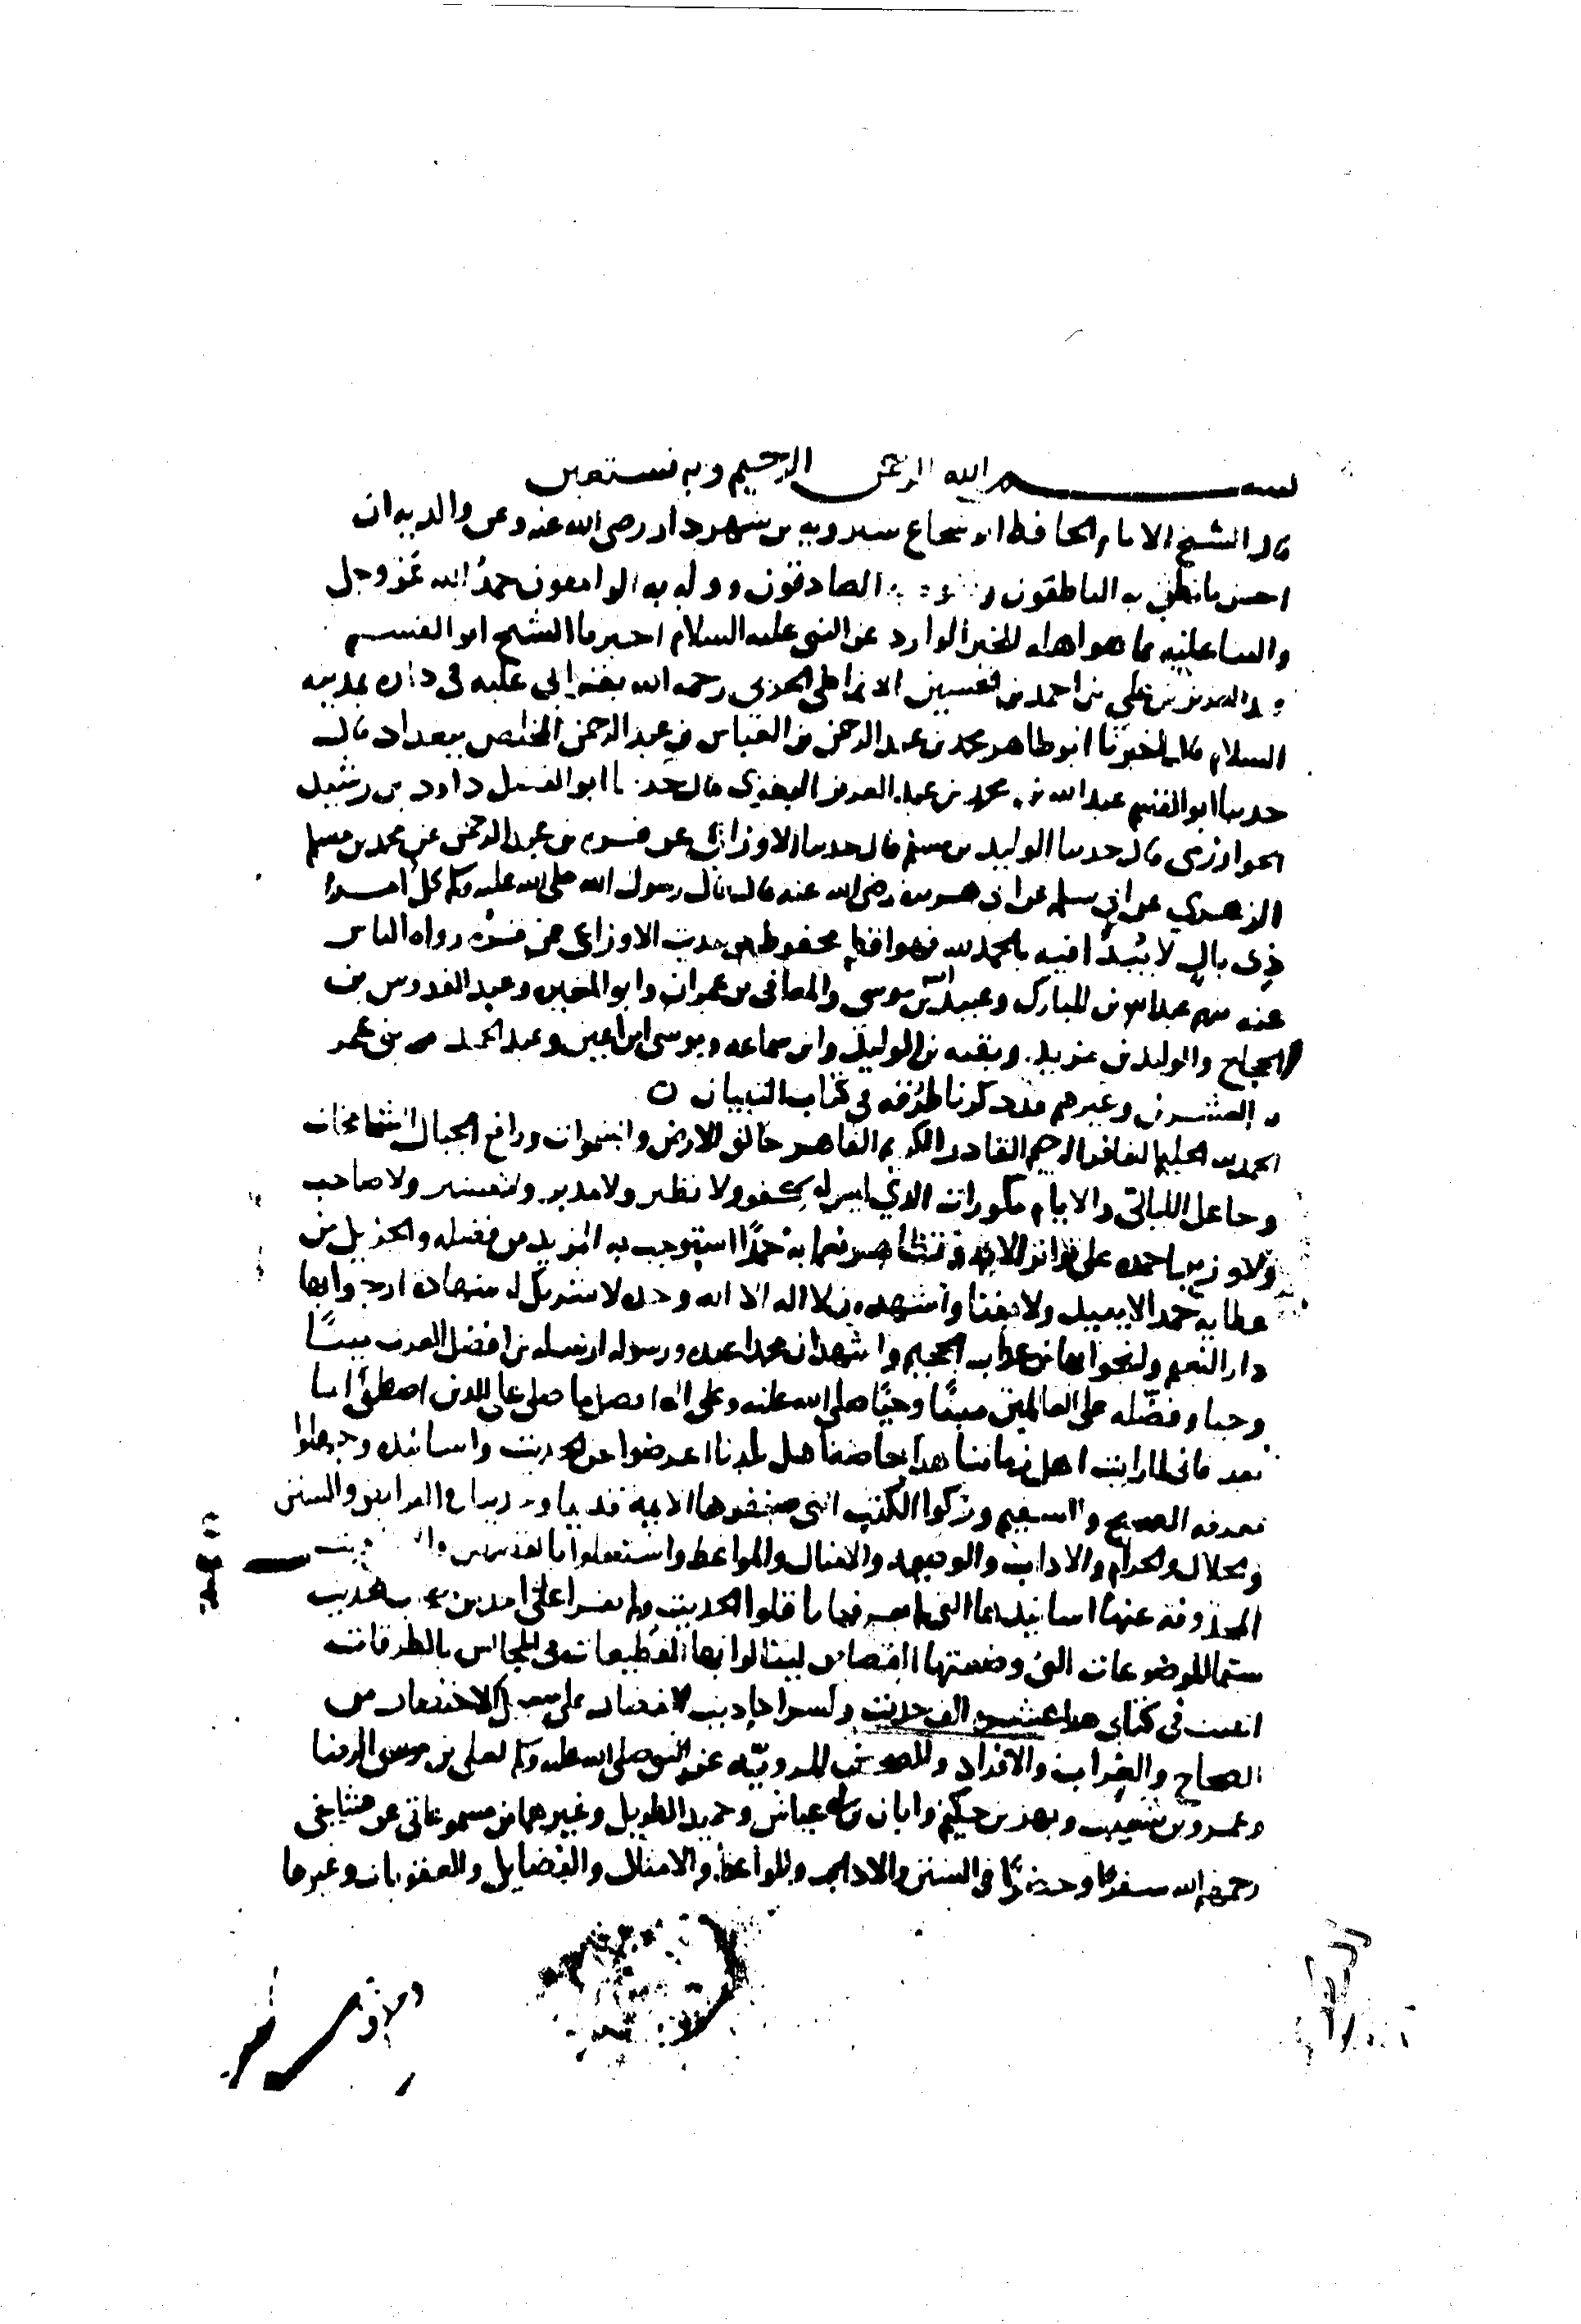 بسم الله الرحمن الرحيم وبه نستعين
قال الشيخ الامام الحافظ ابو شجاع شيرويه بن شهردار رضي الله عنه وعن والديه ان
احسن ما نطق به الناطقون الصادقون ووله به الوامقون حمد الله عز وجل
والثنا عليه بما هو اهله للخبر الوارد عن النبي عليه السلام اخبرنا الشيخ ابو القسم
عبد العزيز بن علي بن احمد بن الحسين الانماطي الحربي رحمه الله بقراتي عليه في داره بمدينة
السلام قال اخبرنا ابو طاهر محمد بن عبد الرحمن بن العباس بن عبد الرحمن المخلص ببغداد قال
حدثنا ابو القسم عبد الله بن محمد بن عبد العزيز البغوي قال حدثنا ابو الفضل داود بن رشيد
الخوارزمي قال حدثنا الوليد بن مسلم قال حدثنا الاوزاعي عن قره بن عبد الرحمن عن محمد بن مسلم
الزهري عن ابي سلمه عن ابي هريره رضي الله عنه قال قال رسول الله صلى الله عليه وسلم كل امر
ذي بال لا يبدا فيه بالحمد لله فهو اقطع محفوظ من حديث الاوزاعي عن قره رواه الناس
عنه منهم عبد الله بن المبارك وعبيد الله بن موسى والمعافى بن عمران وابو المغيره وعبد القدوس بن
الحجاج والوليد بن مزيد وبقيه بن الوليد وابن سماعه وموسى ابن اعين وعبد الحميد بن
ابي العشرين وغيرهم وقد ذكرنا طرقه في كتاب التبيان ن
الحمد لله الحليم الغافر الرحيم القادر الكريم القاهر خالق الارض والسموات ورافع الجبال الشامخات
وجاعل الليالي والايام مكورات الذي ليس له كفو ولا نظير ولا مدبر ولا مشير ولا صاحب
ولا وزير احمده على تواتر الايه وتظاهر نعمايه حمدا استوجب به المزيد من فضله والجزيل من
عطايه حمدا لا يبيد ولا يفنا واشهد ان لا اله الا الله وحده لا شريك له شهادة ارجوا بها
دار النعيم ولنجوا بها من عذاب الجحيم واشهد ان محمدا عبده ورسوله ارسله من افضل العرب بيتا
وحيا وفضله على العالمين ميتا وحيا صلى الله عليه وعلى اله افضل ما صلى على الذين اصطفى اما
بعد فاني لما رايت اهل زماننا هذا خاصة اهل بلدنا اعرضوا عن الحديث واسانيده وجهلوا
معرفه الصحيح والسقيم وتركوا الكتب التي صنفوها الايمه قديما وحديثا في الفرايض والسنن
والحلال والحرام والاداب والوصيه والامثال والمواعظ واشتغلوا بالقصص
المحذوفه عنها اسانيدها التي لم يعرفها ناقلوا الحديث ولم تقرا على احد من اصحاب الحديث
سيما الموضوعات التي وضعتها القصاص لينالوا بها القطيعات في المجالس بالطرقات
اثبت في كتابي هذا عشره الف حديث على سبيل الاختصار من
الصحاح والغرايب والافراد والصحف المرويه عن النبي صلى الله عليه وسلم لعلي بن موسى الرضا
وعمرو بن شعيب وبهز بن حكيم وابان بن ابي عياش وحميد الطويل وغيرهما من مسموعاتي عن مشايخي
رحمهم الله سفرا وحضرا في السنن والاداب والمواعظ والامثال والفضايل والعقوبات وغيرها